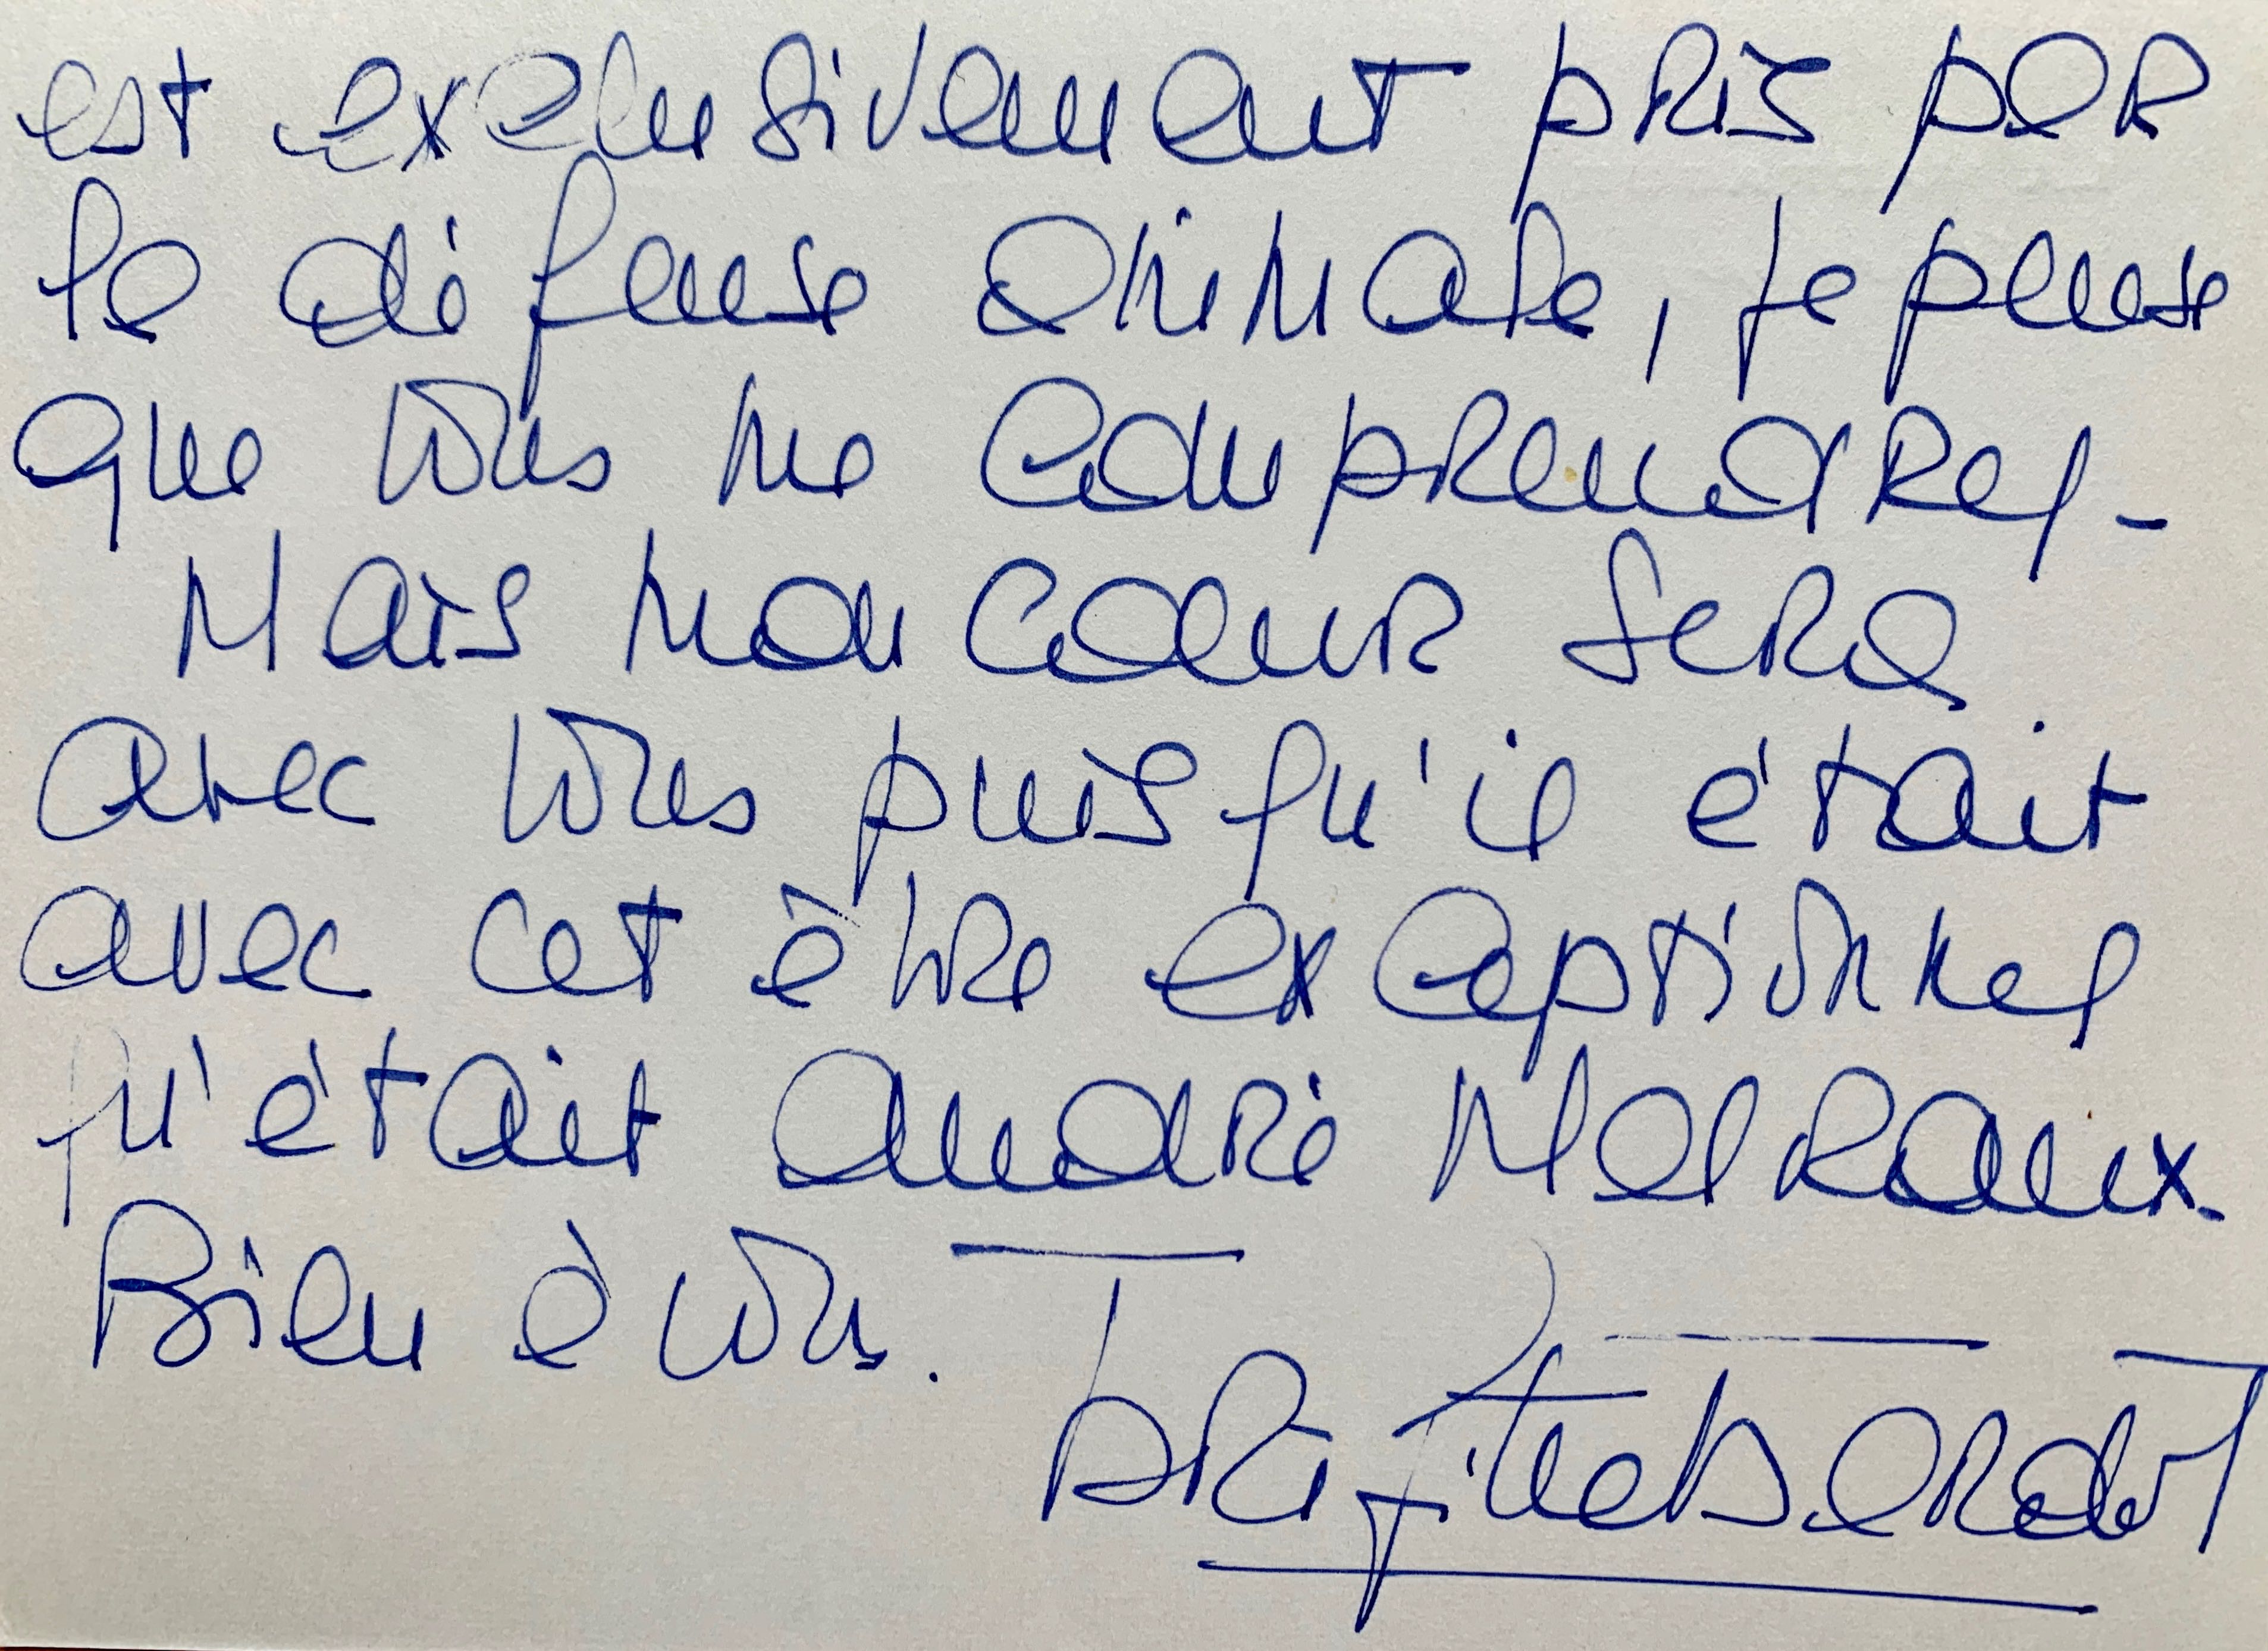 est exclusivement pris par
la défense animale, je pense
que vous me comprendrez -
Mais mon cœur sera
avec vous puisqu'il était
avec cet être exceptionnel
qu'était André Malraux.
Bien à vous.
Brigitte Bardot